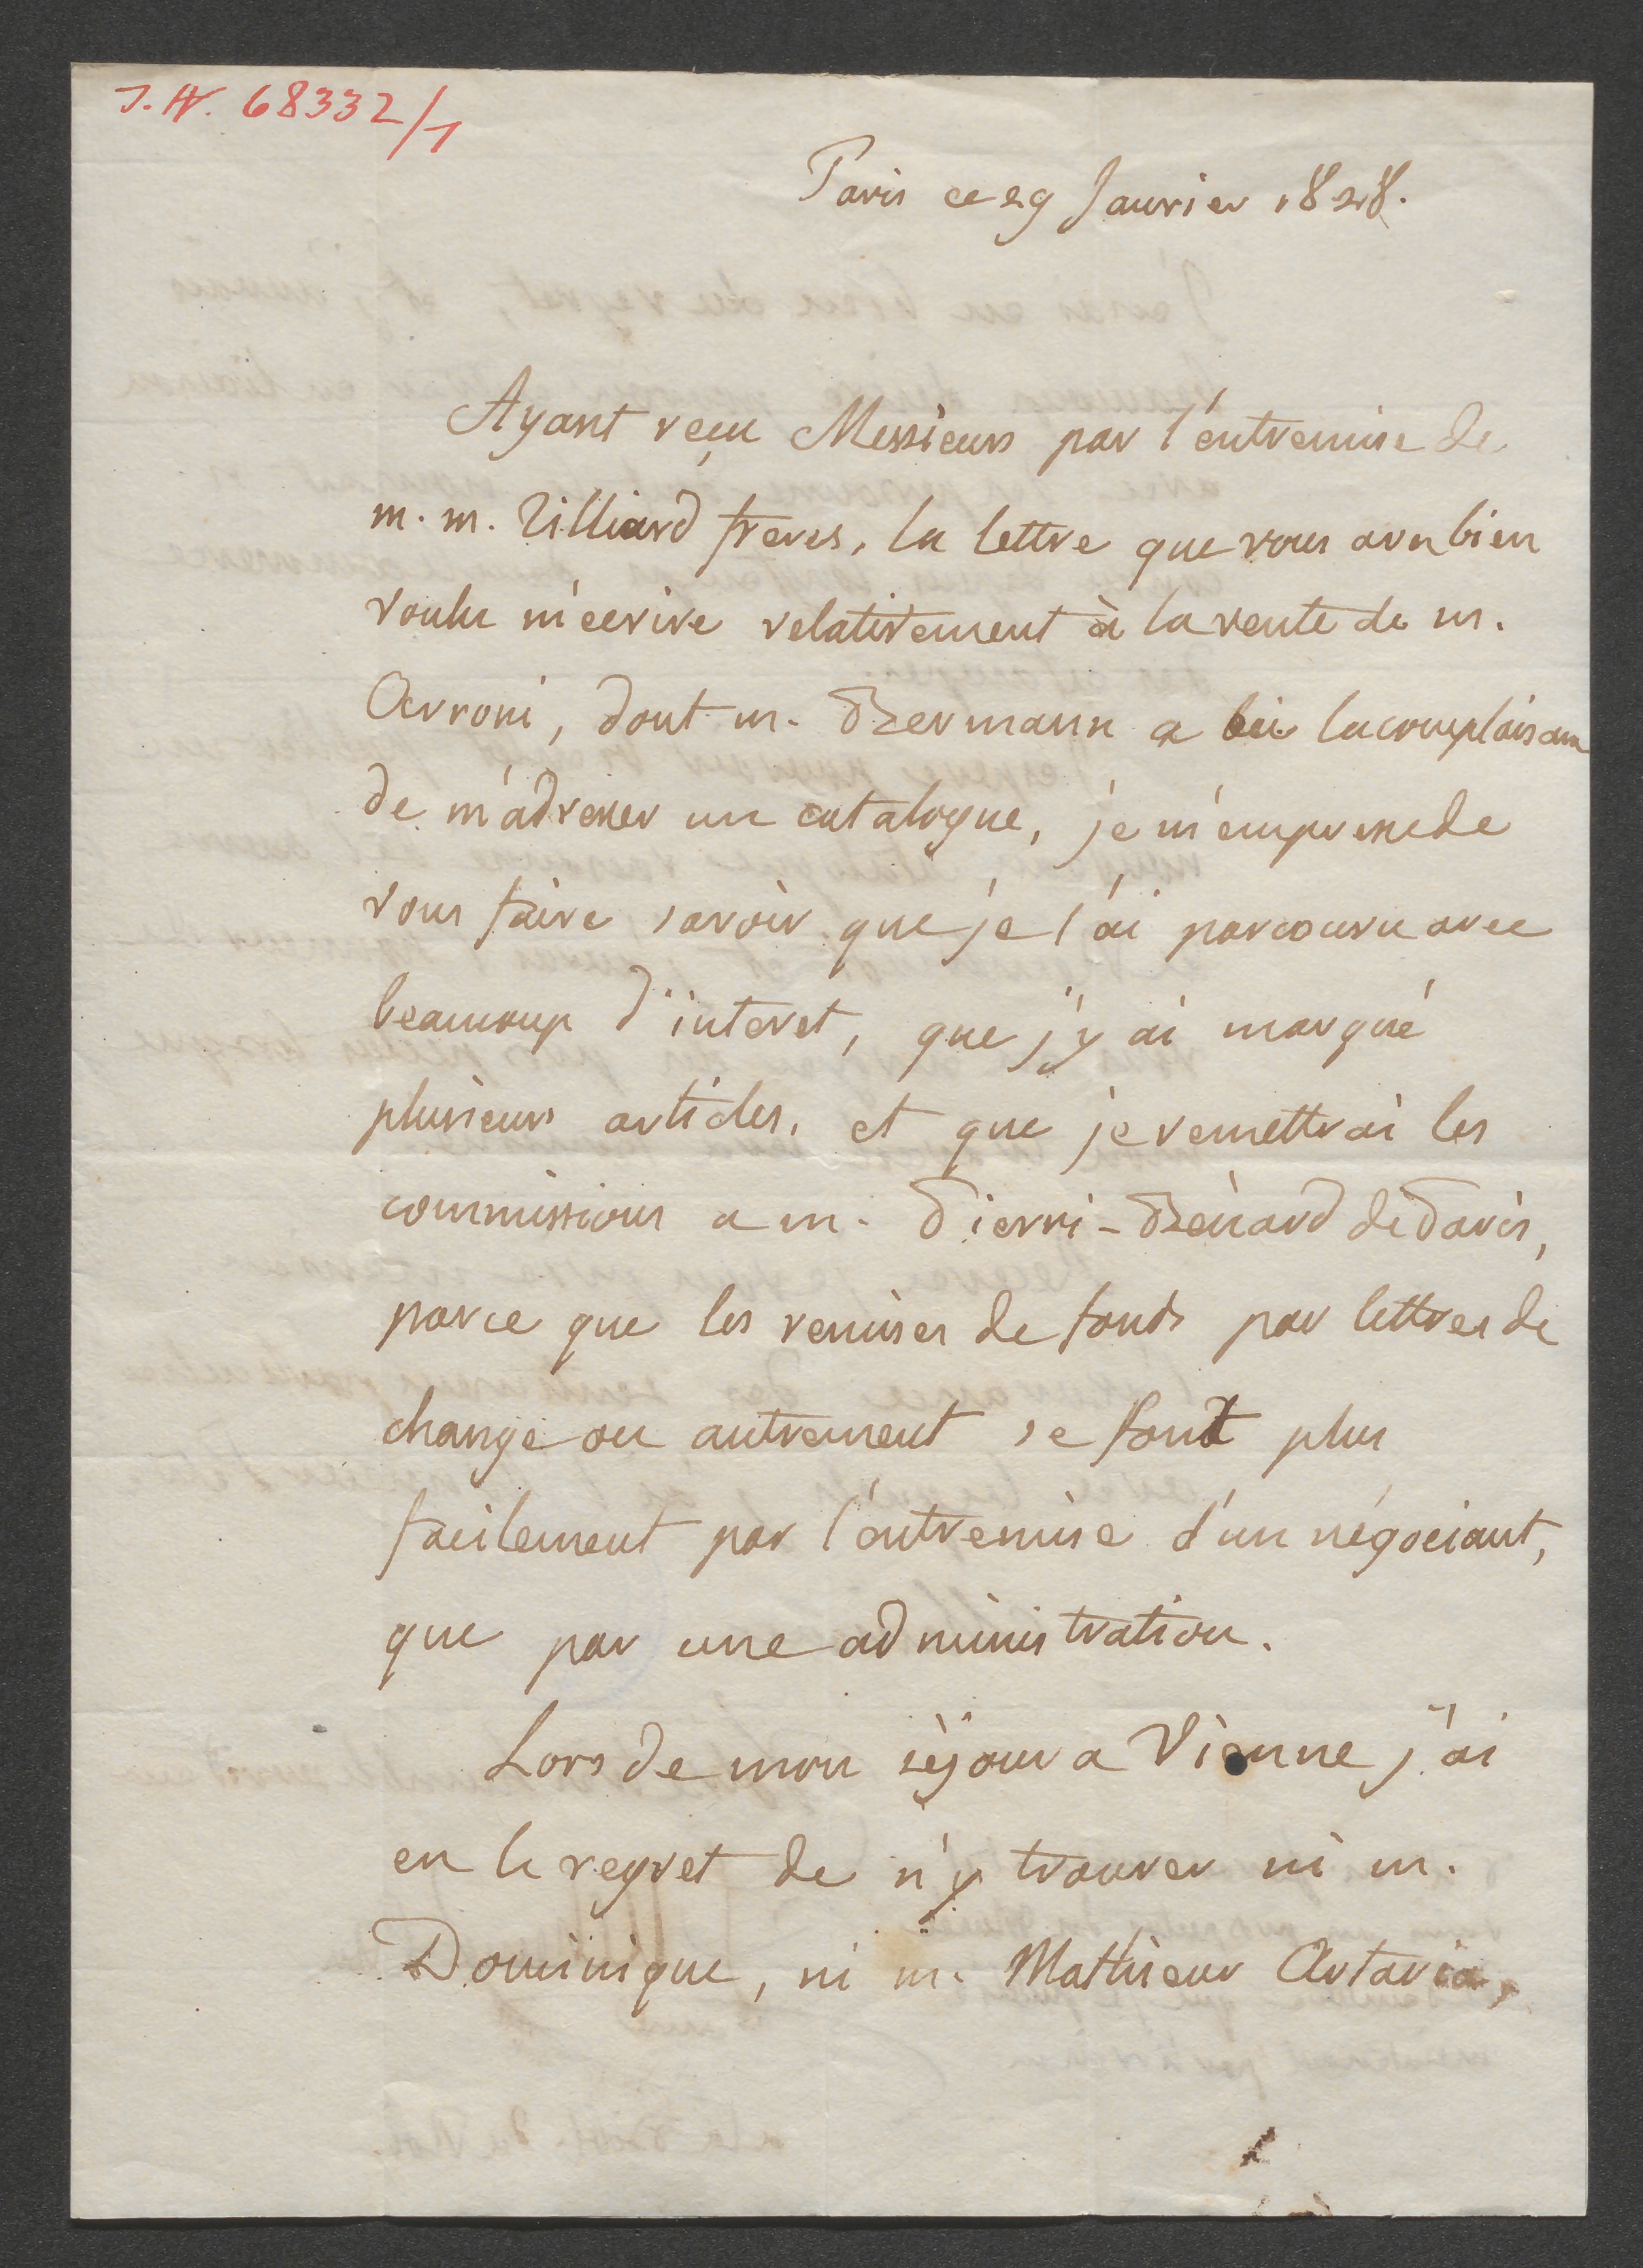 J.N. 68332/1
Paris ce 29 Janvier 1828.
Ayant reçu Messieurs par l'entremise de
m. m. Tilliard freres, la lettre que vous avez bien
voulu m'ecrire relativement à la vente de m.
dont m. Bermann a eu la complaisance
de m'adresser un catalogue, je m'empresse de
vous faire savoir que je l'ai parcouru avec
beaucoup d'interet, que j'y ai marqué
plusieurs articles, et que je remettrai les
commissions a m. Pierri-Bénard de Paris,
parce que les remises de fonds par lettres de
change ou autrement se font plus
facilement par l'entremise d'un négociant,
que par une administration.
Lors de mon séjour a Vienne j'ai
eu le regret de n'y trouver ni m.
Dominique, ni m. Mathieur Artaria,